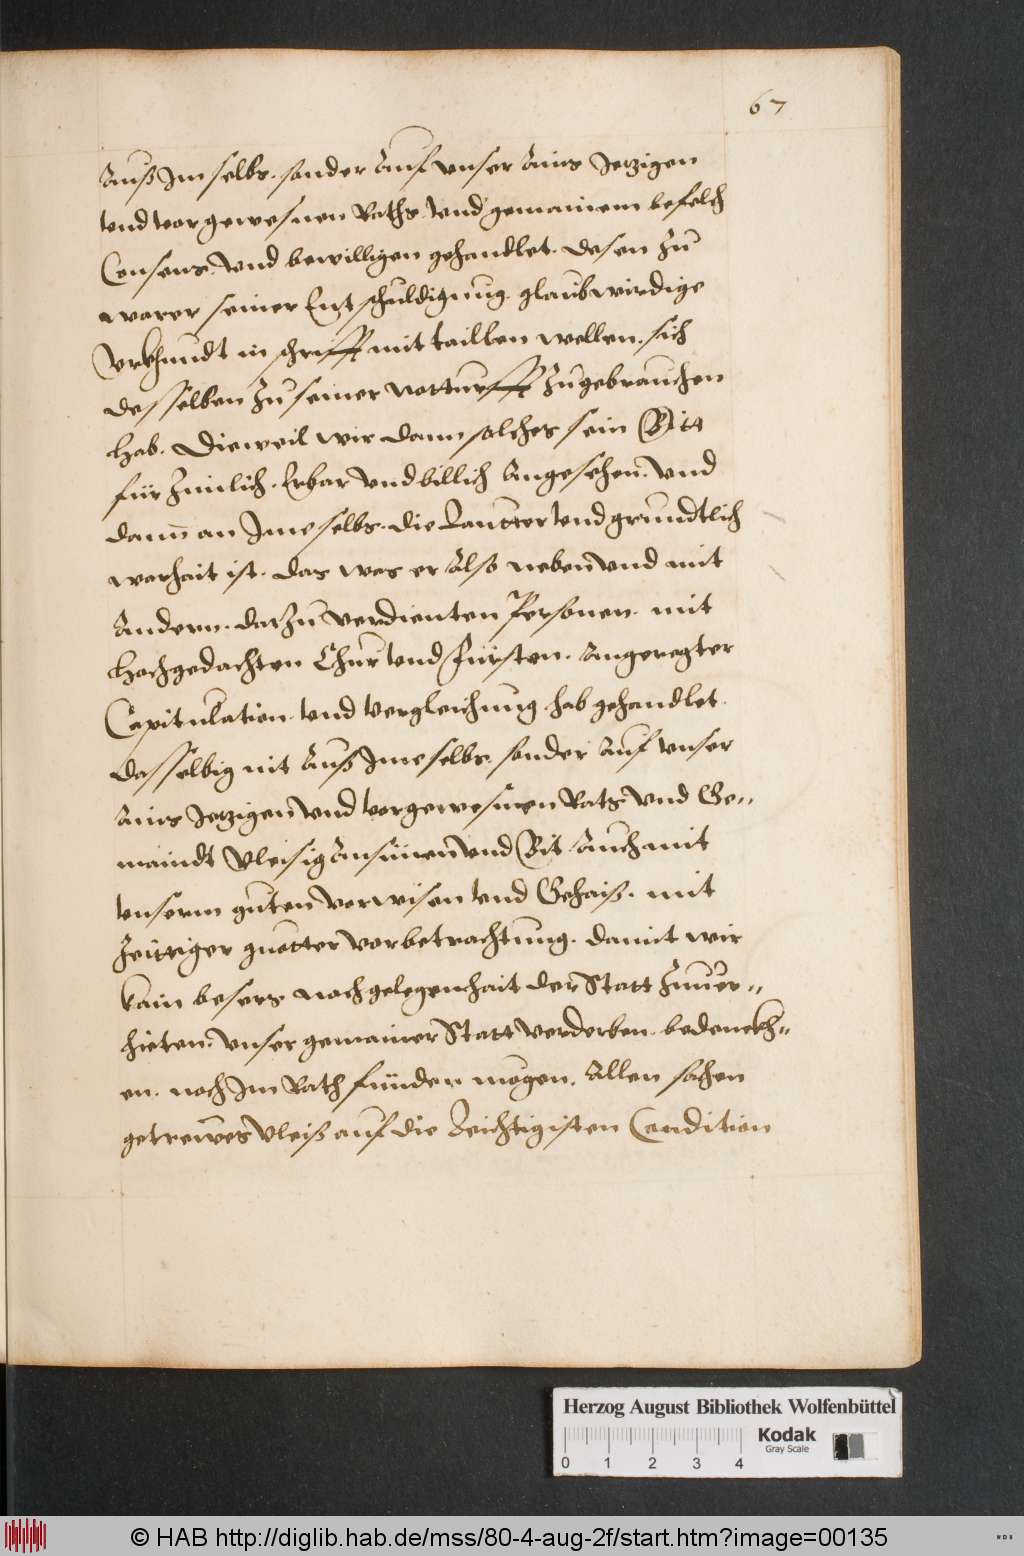 67
Auß Im selbs. sonder Auf unser Ains Jetzigen
vnd vorgewesnen Raths. Vnd gemainem befelch
Consens. Vnd bewilligen gehandlet. desen zu
warer seiner Entschuldigung. glaubwirdige
Vrkhundt in schrifft mittaillen wellen. sich
desselben zu seiner notturfft zugebrauchen
hab. Dieweil wir dann solches sein Bitt
für zimlich. Erbar vnd billich Angesehen. Vnd
dann an Ime selbs. die Lautter vnd grundtlich
warhait ist. das wes er Also neben vnd mit
Andern. darzu verdienten Personen. mit
hochgedachten Chur vnd Fürsten. Angeregter
Capitulation. vnd Vergleichung hab gehandlet.
dasselbig nit Auß Ime selbs. sonder Auf vnser
Ains Jetzigen vnd vorgewesnen Rats. vnd Ge„
maindt Vleisig Ansünen vnd Bit Auch mit
vnserm guten vorwisen vnd Gehaiß. mit
Zeittiger guetter vorbetrachtung. damit wir
kain besers noch gelegenhait der Statt Zuuer„
hieten. vnser gemainer Statt verderben. bedenckh„
en. noch Im Rath fünden mögen. Allen sachen
getrewes Vleiß auf die Leichtigisten Condition
Herzog August Bibliothek Wolfenbüttel
Kodak
Gray Scale
0 1 2 3 4
© HAB http://diglib.hab.de/mss/80-4-aug-2f/start.htm?image=00135